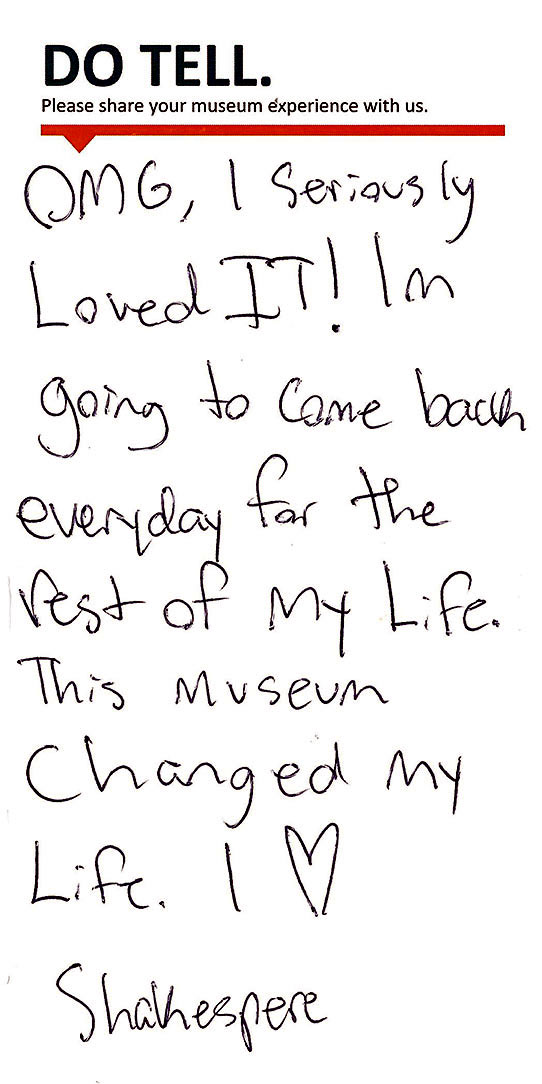 DO TELL.
Please share your museum experience with us.
OMG, I Seriously
Loved IT! Im
going to Come back
everyday for the
rest of My Life.
This Museum
Changed My
Life. I ♡
Shakespere